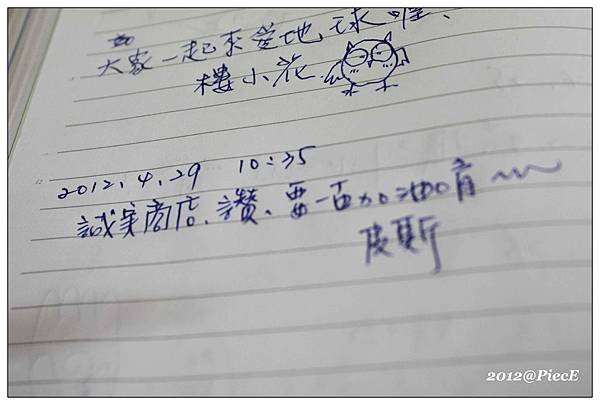 大家一起來愛地球喔、
樓小花
2012.4.29 10:35
誠實商店、讚、要一直加油唷~~
皮斯
2012@PiecE